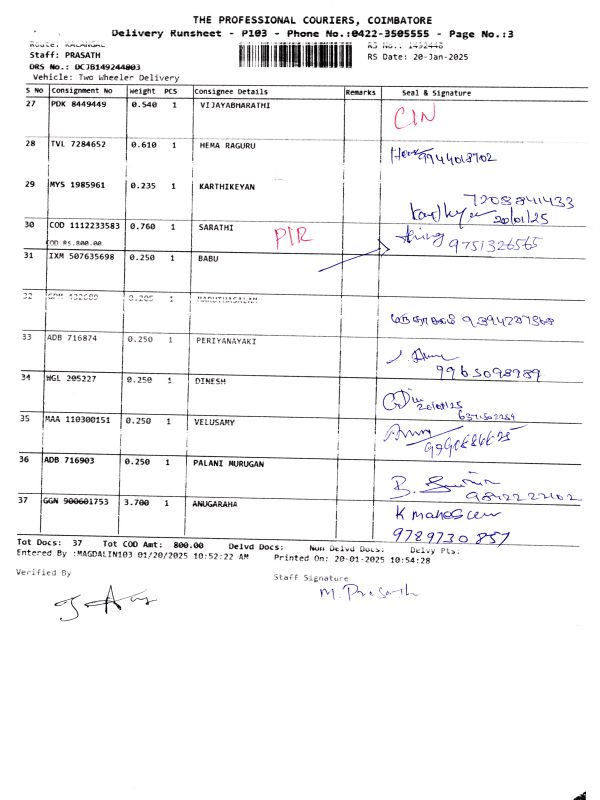 THE PROFESSIONAL COURIERS, COIMBATORE
Delivery Runsheet - P103 - Phone No.:0422-3505555 - Page No.:3
Route: KALANGAL RS No.: 1492448
Staff: PRASATH RS Date: 20-Jan-2025
DRS No.: DCJB149244803
Vehicle: Two Wheeler Delivery
S No Consignment No Weight PCS Consignee Details Remarks Seal & Signature
27 PDK 8449449 0.540 1 VIJAYABHARATHI
CIN
28 TVL 7284652 0.610 1 HEMA RAGURU
9944018702
29 MYS 1985961 0.235 1 KARTHIKEYAN
7208841433
20/01/25
30 COD 1112233583 0.760 1 SARATHI
PIR
9751326565
COD RS.800.00
31 IXM 507635698 0.250 1 BABU
32 0.205 1 MARUTHASALAM
33 ADB 716874 0.250 1 PERIYANAYAKI
9963098989
34 WGL 205227 0.250 1 DINESH
20/01/25
35 MAA 110300151 0.250 1 VELUSAMY
36 ADB 716903 0.250 1 PALANI MURUGAN
9842222102
37 GGN 900601753 3.700 1 ANUGARAHA
9789730857
Tot Docs: 37 Tot COD Amt: 800.00 Delvd Docs: Non Delvd Docs: Delvy Pts:
Entered By :MAGDALIN103 01/20/2025 10:52:22 AM Printed On: 20-01-2025 10:54:28
Verified By Staff Signature
M. Prasath